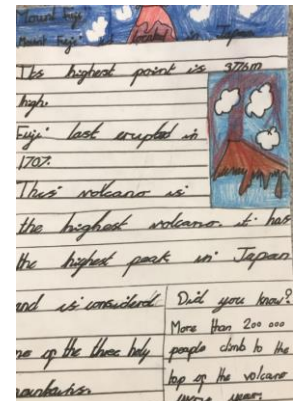 Mount Fuji
Mount Fuji is located in Japan
Its highest point is 3776m
high.
Fuji last erupted in
1707.
This volcano is
the highest volcano. it has
the highest peak in Japan
and is considered
one of the three holy
mountains.
Did you know?
More than 200 000
people climb to the
top of the volcano
every year.